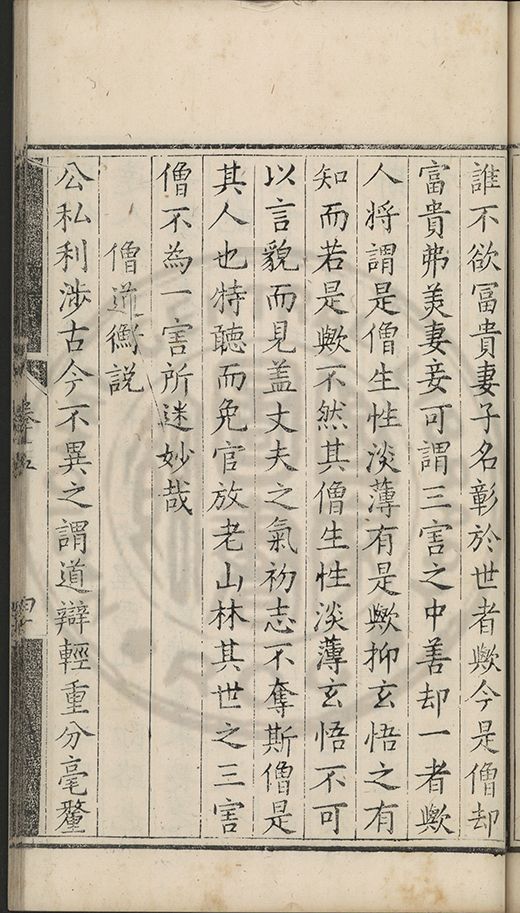 誰不欲冨貴妻子名彰於世者歟今是僧却
富貴弗美妻妾可謂三害之中善却一者歟
人將謂是僧生性淡薄有是歟抑玄悟之有
知而若是歟不然其僧生性淡薄玄悟不可
以言貌而見盖丈夫之氣初志不奪斯僧是
其人也特聽而免官放老山林其世之三害
僧不為一害所迷妙哉
僧道衡説
公私利涉古今不異之謂道辯輕重分毫釐